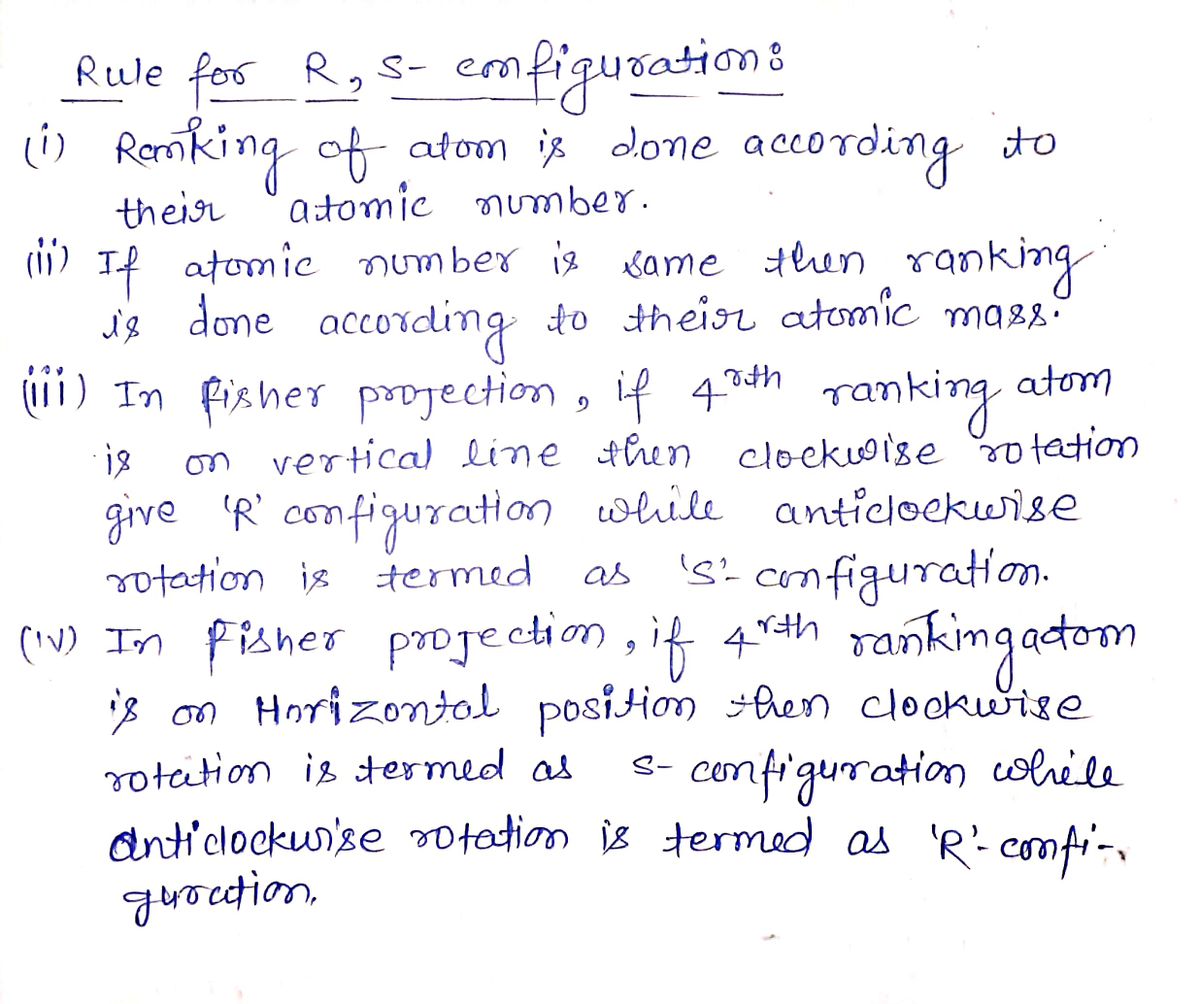 Rule for R, S- configuration:
(i) Ranking of atom is done according to
their atomic number.
(ii) If atomic number is same then ranking
is done according to their atomic mass.
(iii) In Fisher projection, if 4rth ranking atom
is on vertical line then clockwise rotation
give 'R' configuration while anticlockwise
rotation is termed as 'S'- configuration.
(iv) In Fisher projection, if 4rth ranking atom
is on Horizontal position then clockwise
rotation is termed as S- configuration while
anticlockwise rotation is termed as 'R'- confi-
guration.